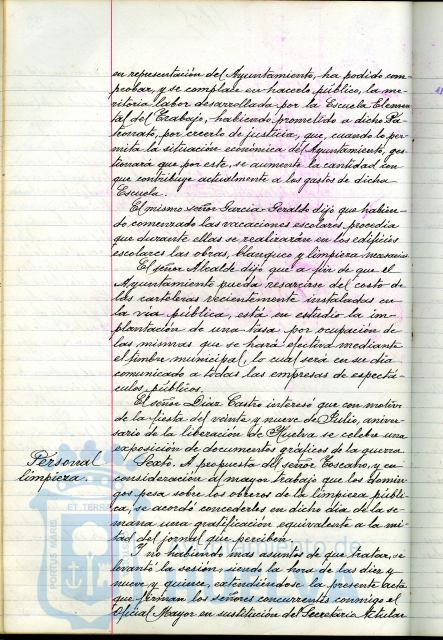 en representación del Ayuntamiento, ha podido com-
probar, y se complace en hacerlo público, la me-
ritoria labor desarrollada por la Escuela Elemen-
tal del Trabajo, habiendo prometido a dicho Pa-
tronato, por creerlo de justicia, que, cuando lo per-
mita la situación económica del Ayuntamiento, ges-
tionará que por este, se aumente la cantidad con
que contribuye actualmente a los gastos de dicha
Escuela.
El mismo señor Garcia-Geraldo dijó que habien-
do comenzado las vacaciones escolares procedia
que durante ellas se realizarán en los edificios
escolares las obras, blanqueo y limpieza necesarias.
El señor Alcalde dijó que a fin de que el
Ayuntamiento pueda resarcirse del costo de
las carteleras recientemente instaladas en
la vía pública, está en estudio la im-
plantación de una tasa por ocupación de
las mismas que se hará efectiva mediante
el timbre municipal, lo cual será en su dia
comunicado a todas las empresas de espectá-
culos públicos.
El señor Díaz Castro interesó que con motivo
de la fiesta del veinte y nueve de Julio, aniver-
sario de la liberación de Huelva se celebre una
exposición de documentos gráficos de la guerra.
Personal limpieza.
Sexto. A propuesta del señor Toscano, y en
consideración al mayor trabajo que los domin-
gos pesa sobre los obreros de la limpieza públi-
ca, se acordó concederles en dicho día de la se-
mana una gratificación equivalente a la mi-
tad del jornal que perciben.
Y no habiendo más asuntos de que tratar, se
levantó la sesión, siendo la hora de las diez y
nueve y quince, extendiéndose la presente acta
que firman los señores concurrentes conmigo el
Oficial Mayor en sustitución del Secretario titular
PORTUS MARIS ET TERRAE